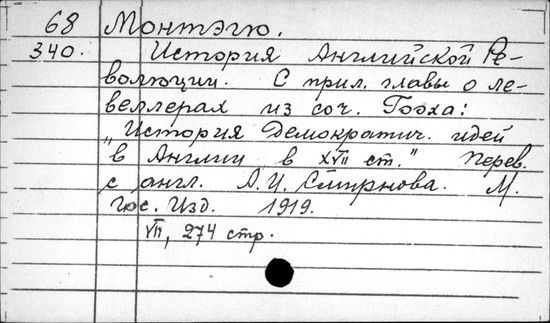 68 Монтэгю.
340. История Английской Ре-
волюции. С прил. главы о ле-
веллерах из соч. Гооха:
"История Демократич. идей
в Англии в XVII ст." Перев.
с англ. А.И. Смирнова. М.
Гос. Изд. 1919.
VII, 274 стр.